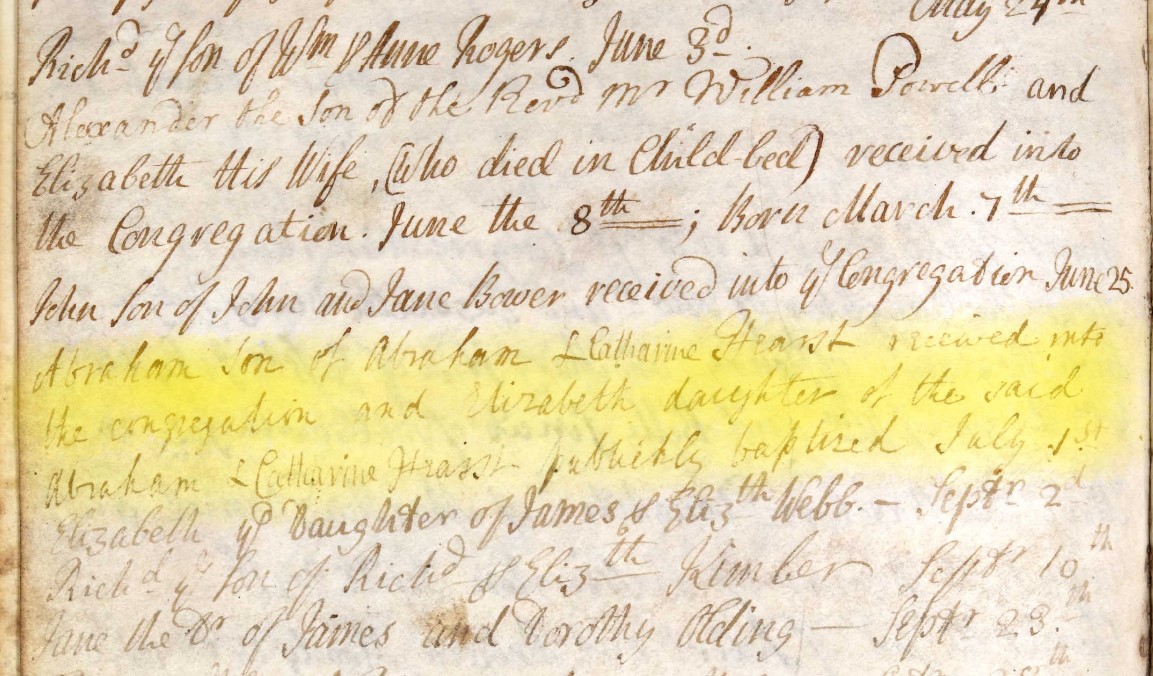 May 24th
Richd ye son of Wm & Anne Rogers. June 3d.
Alexander the Son of the Revd Mr William Powell and
Elizabeth His Wife, (Who died in Child-bed) received into
the Congregation. June the 8th; Born March. 7th
John Son of John and Jane Bower received into ye Congregation June 25.
Abraham Son of Abraham & Catharine Hearst received into
the congregation and Elizabeth daughter of the said
Abraham & Catharine Hearst publickly baptized July 1st
Elizabeth ye Daughter of James & Elizth Webb. – Septr 2d
Richd ye son of Richd & Elizth Kimber Septr 10th
Jane the Dr of James and Dorothy Olding – Septr 23.th